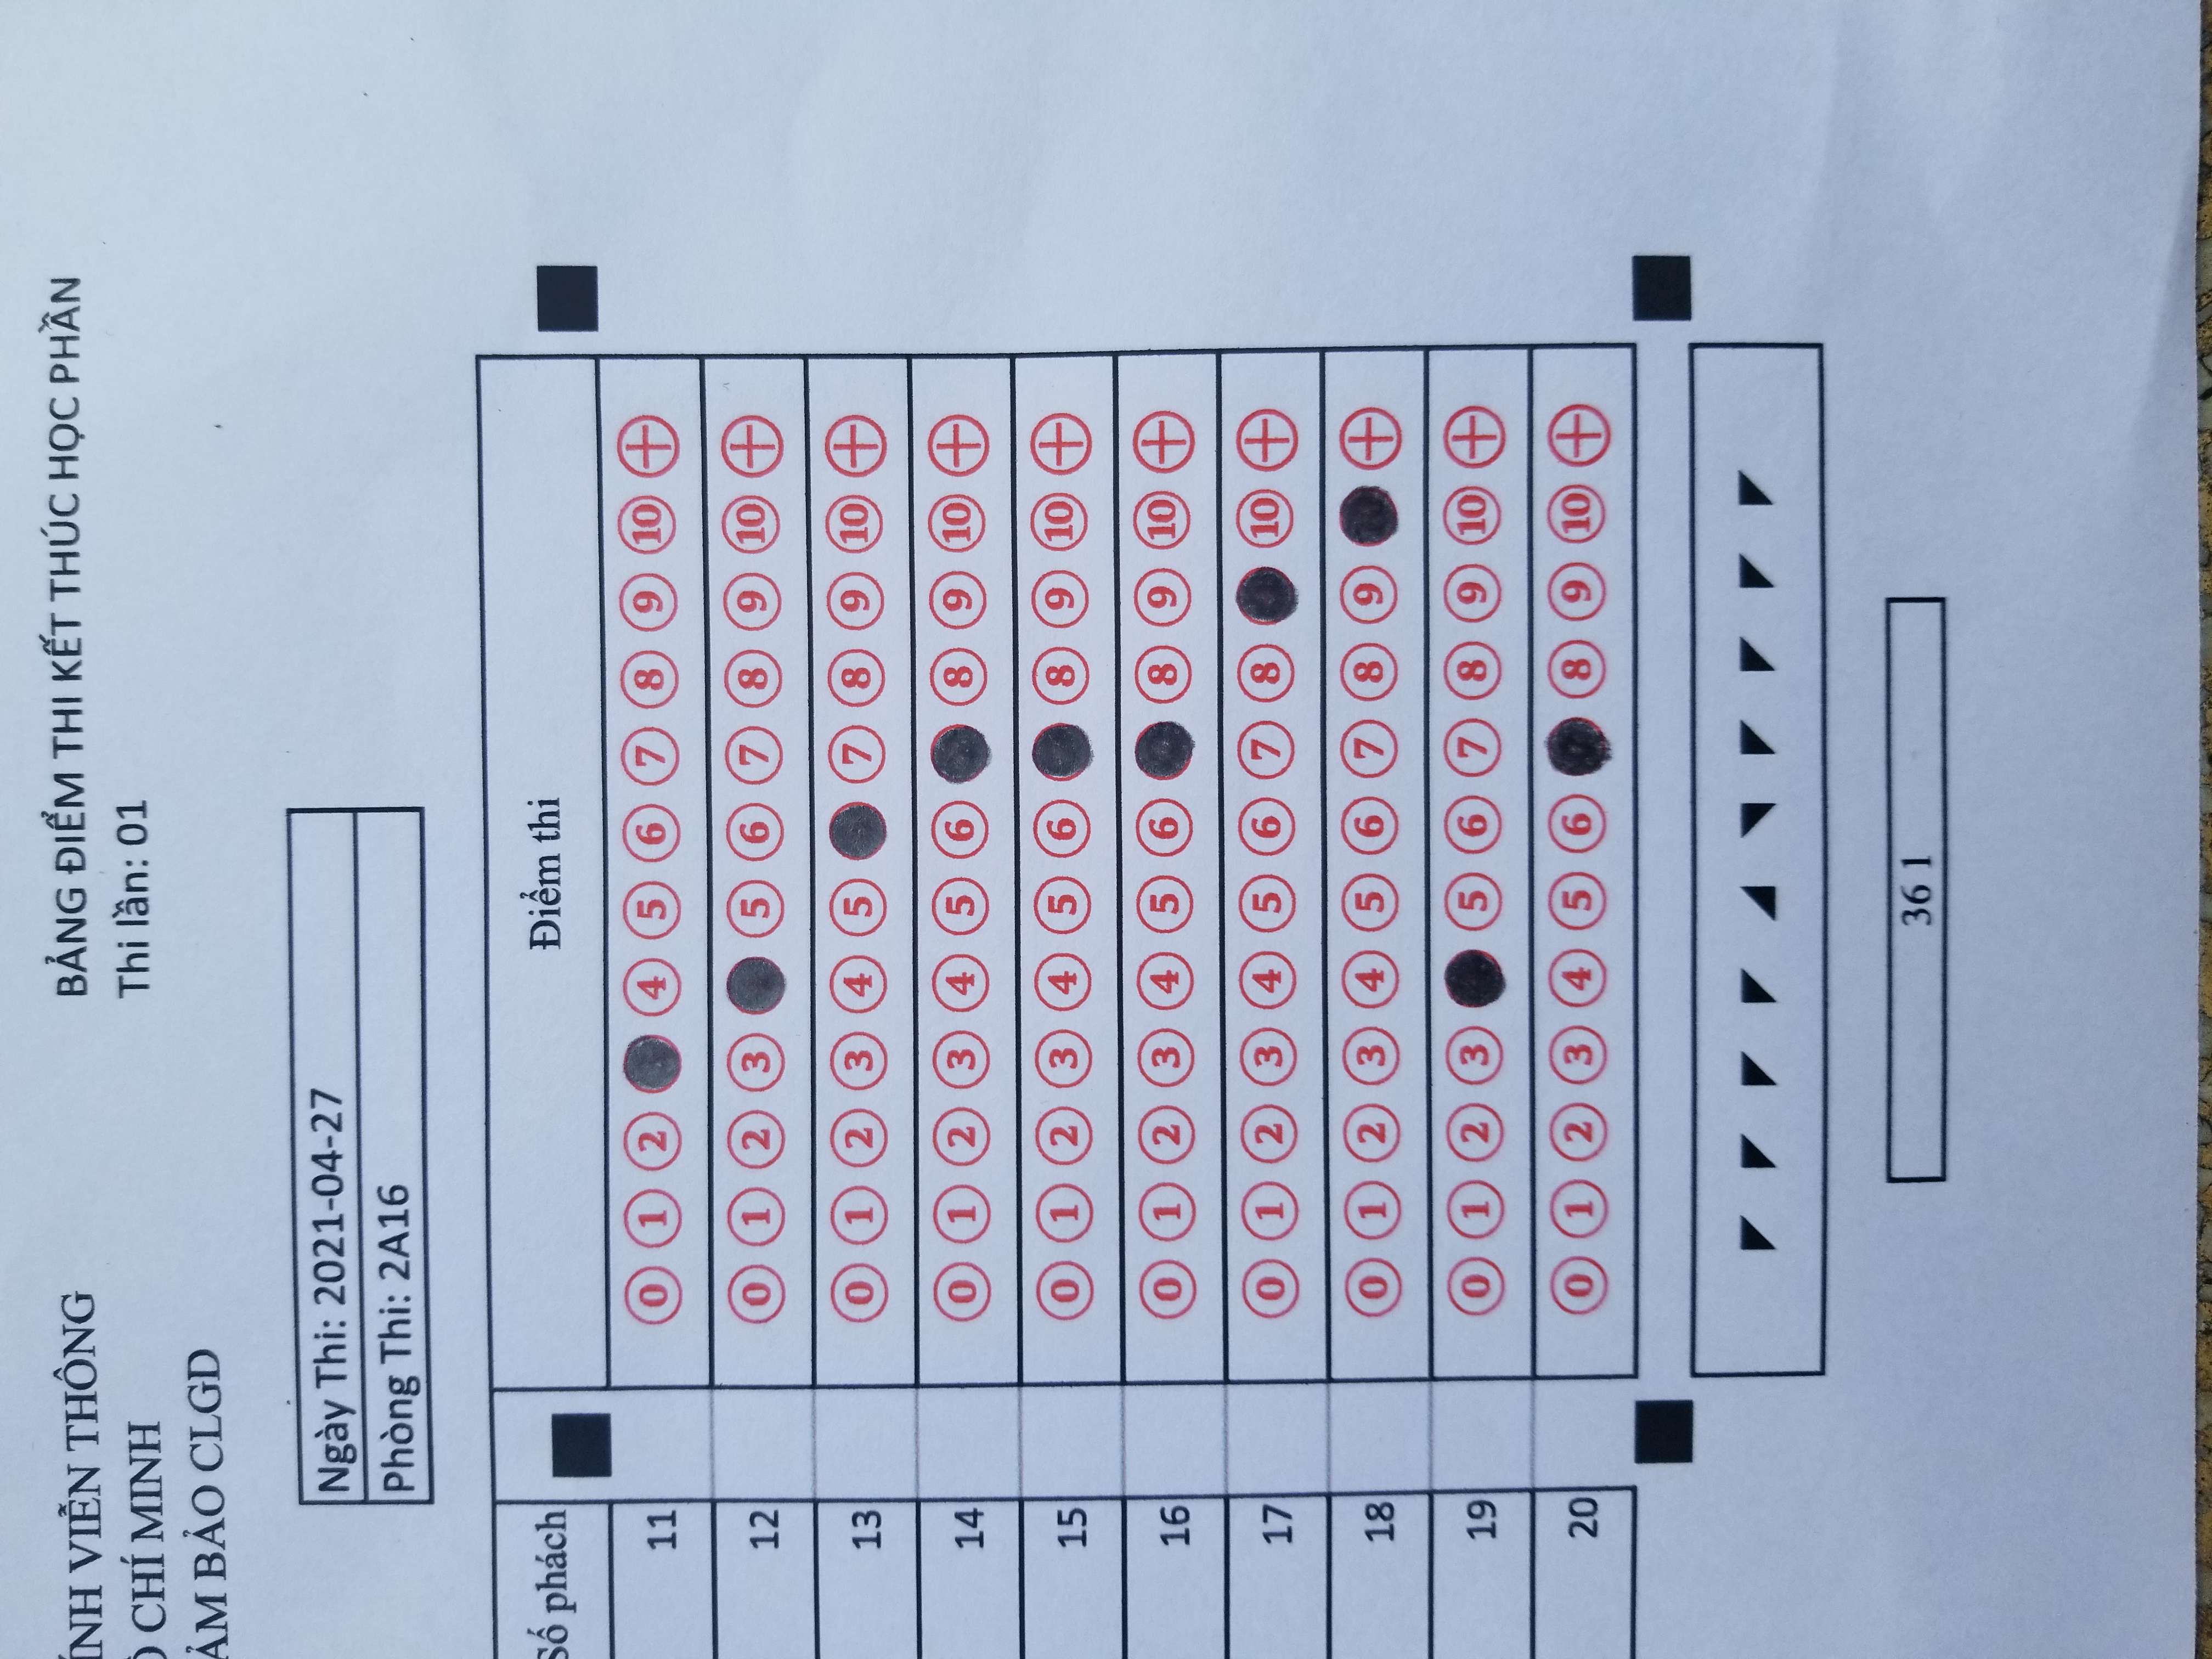 ÍNH VIỄN THÔNG
CHÍ MINH
ẢM BẢO CLGD
BẢNG ĐIỂM THI KẾT THÚC HỌC PHẦN
Thi lần: 01
Ngày Thi: 2021-04-27
Phòng Thi: 2A16
Số phách Điểm thi
11 0 1 2 4 5 6 7 8 9 10 +
12 0 1 2 3 5 6 7 8 9 10 +
13 0 1 2 3 4 5 7 8 9 10 +
14 0 1 2 3 4 5 6 8 9 10 +
15 0 1 2 3 4 5 6 8 9 10 +
16 0 1 2 3 4 5 6 8 9 10 +
17 0 1 2 3 4 5 6 7 8 10 +
18 0 1 2 3 4 5 6 7 8 9 +
19 0 1 2 3 5 6 7 8 9 10 +
20 0 1 2 3 4 5 6 8 9 10 +
36 1